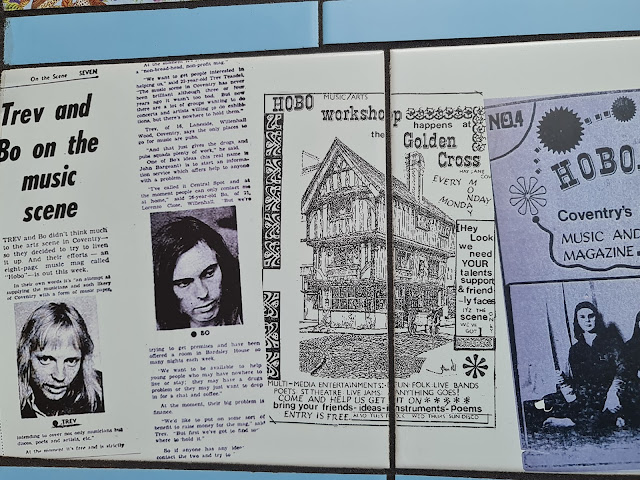 On the Scene SEVEN
Trev and
Bo on the
music
scene
TREV and Bo didn't think much
to the arts scene in Coventry—
so they decided to try to liven
it up. And their efforts — an
eight-page music mag called
"Hobo"— is out this week.
In their own words it's "an attempt at
supplying the musicians and such likery
of Coventry with a form of music paper,
TREV
intending to cover not only musicians but
discos, poets and artists, etc."
At the moment it's free and is strictly
At the moment it's
a "non-bread-head, non-profit mag."
"We want to get people interested in
helping us," said 21-year-old Trev Teasdel.
"The music scene in Coventry has never
been brilliant although three or four
years ago it wasn't too bad. But now
there are a lot of groups wanting to do
concerts and artists willing to do exhibi-
tions, but there's nowhere to hold them."
Trev, of 16, Laneside, Willenhall
Wood, Coventry, says the only places to
go for music are pubs.
"And that just gives the drugs and
pubs squads plenty of work," he said.
One of Bo's ideas (his real name is
John Bargent) is to start an informa-
tion service which offers help to anyone
with a problem.
"I've called it Central Spot and at
the moment people can only contact me
at home," said 26-year-old Bo, of 21,
Lorenzo Close, Willenhall. "But we're
BO
trying to get premises and have been
offered a room in Bardsley House so
many nights each week.
"We want to be available to help
young people who may have nowhere to
live or stay; they may have a drugs
problem or they may just want to drop
in for a chat and coffee."
At the moment, their big problem is
finance.
"We'd like to put on some sort of
benefit to raise money for the mag," said
Trev. "But first we've got to find
where to hold it."
So if anyone has any
contact the two and try to
HOBO MUSIC/ARTS
workshop happens at
the Golden
Cross
HAY LANE
EVERY MONDAY
MONDAY
Hey
Look
we
need
YOUR
talents
support
& friend
ly faces
ITZ THE
SCENE
WE'VE
GOT!
MULTI-MEDIA ENTERTAINMENTS: FUN FOLK LIVE BANDS
POETS STTHEATRE LIVE JAMS ANYTHING GOES!
COME AND HELP US GET IT ON
bring your friends-ideas-instruments-Poems
ENTRY IS FREE. ALSO TUES FOLK WED THURS SUN DISCO
NO.4
HOBO
Coventry's
MUSIC AND
MAGAZINE